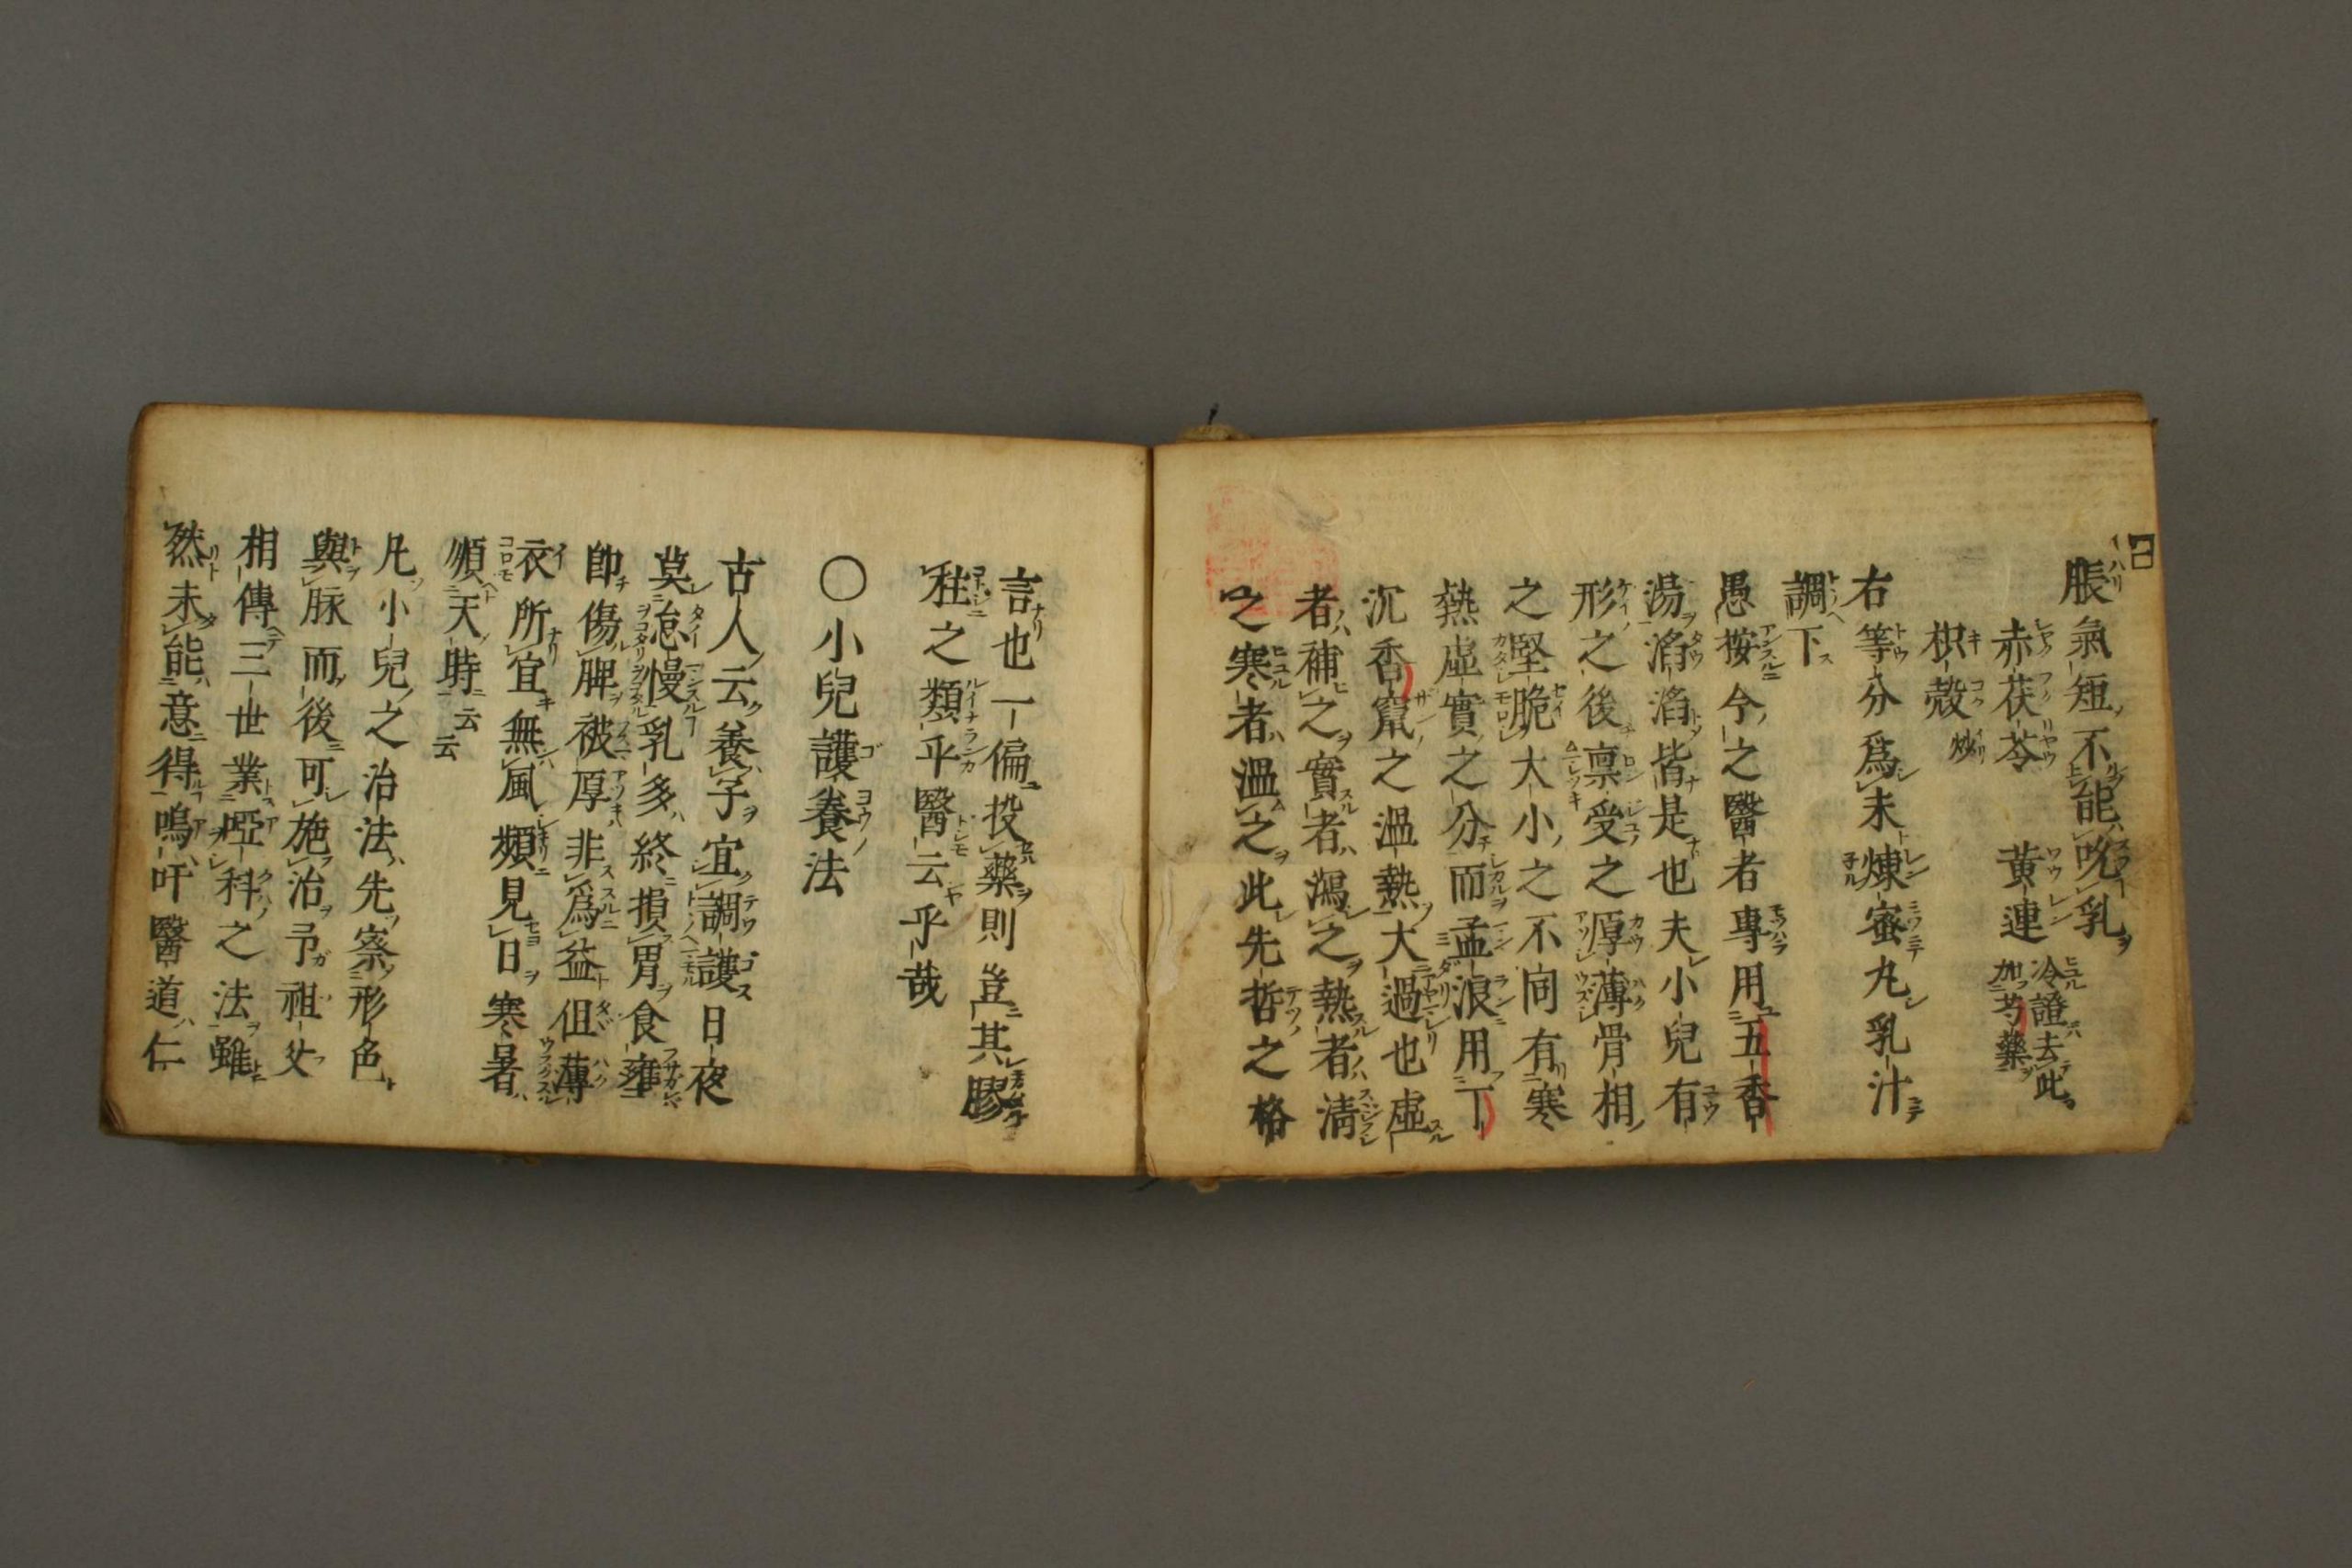 脹氣短不能吮乳
赤茯苓 黄連 冷證去此加芍藥
枳殼 炒
右等分爲末煉蜜丸乳汁
調下
愚按今之醫者專用五香
湯滔滔皆是也夫小兒有
形之後禀受之厚薄骨相
之堅脆大小之不同有寒
熱虛實之分而孟浪用丁
沉香竄之温熱大過也虛
者補之實者瀉之熱者淸
之寒者温之此先哲之格
言也一偏投藥則豈其膠
柱之類乎醫云乎哉
〇小兒護養法
古人云養子宜調護日夜
莫怠慢乳多終損胃食壅
卽傷脾被厚非爲益但薄
衣所宜無風頻見日寒暑
順天時云云
凡小兒之治法先察形色
與脉而後可施治予祖父
相傳三世業啞科之法雖
然未能意得嗚吁醫道仁